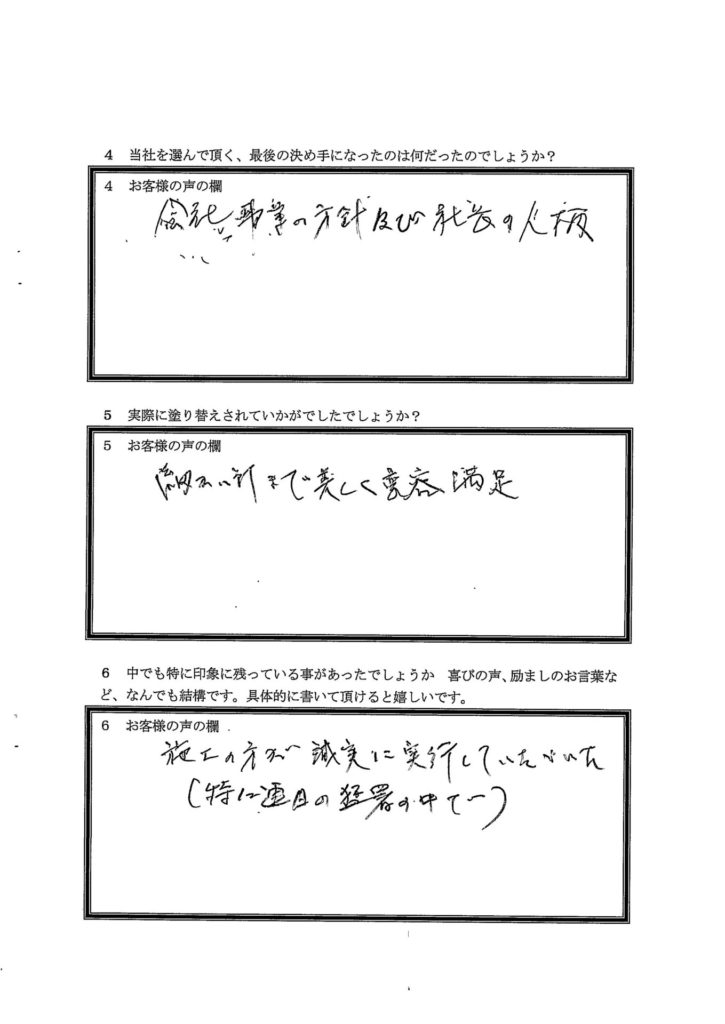 4 当社を選んで頂く、最後の決め手になったのは何だったのでしょうか？
4 お客様の声の欄
会社 の方針及び社長の人柄
5 実際に塗り替えされていかがでしたでしょうか？
5 お客様の声の欄
細かい まで美しく変容 満足
6 中でも特に印象に残っている事があったでしょうか 喜びの声、励ましのお言葉な
ど、なんでも結構です。具体的に書いて頂けると嬉しいです。
6 お客様の声の欄
施工の方が誠実に実行していただいた
（特に連日の猛暑の中で）